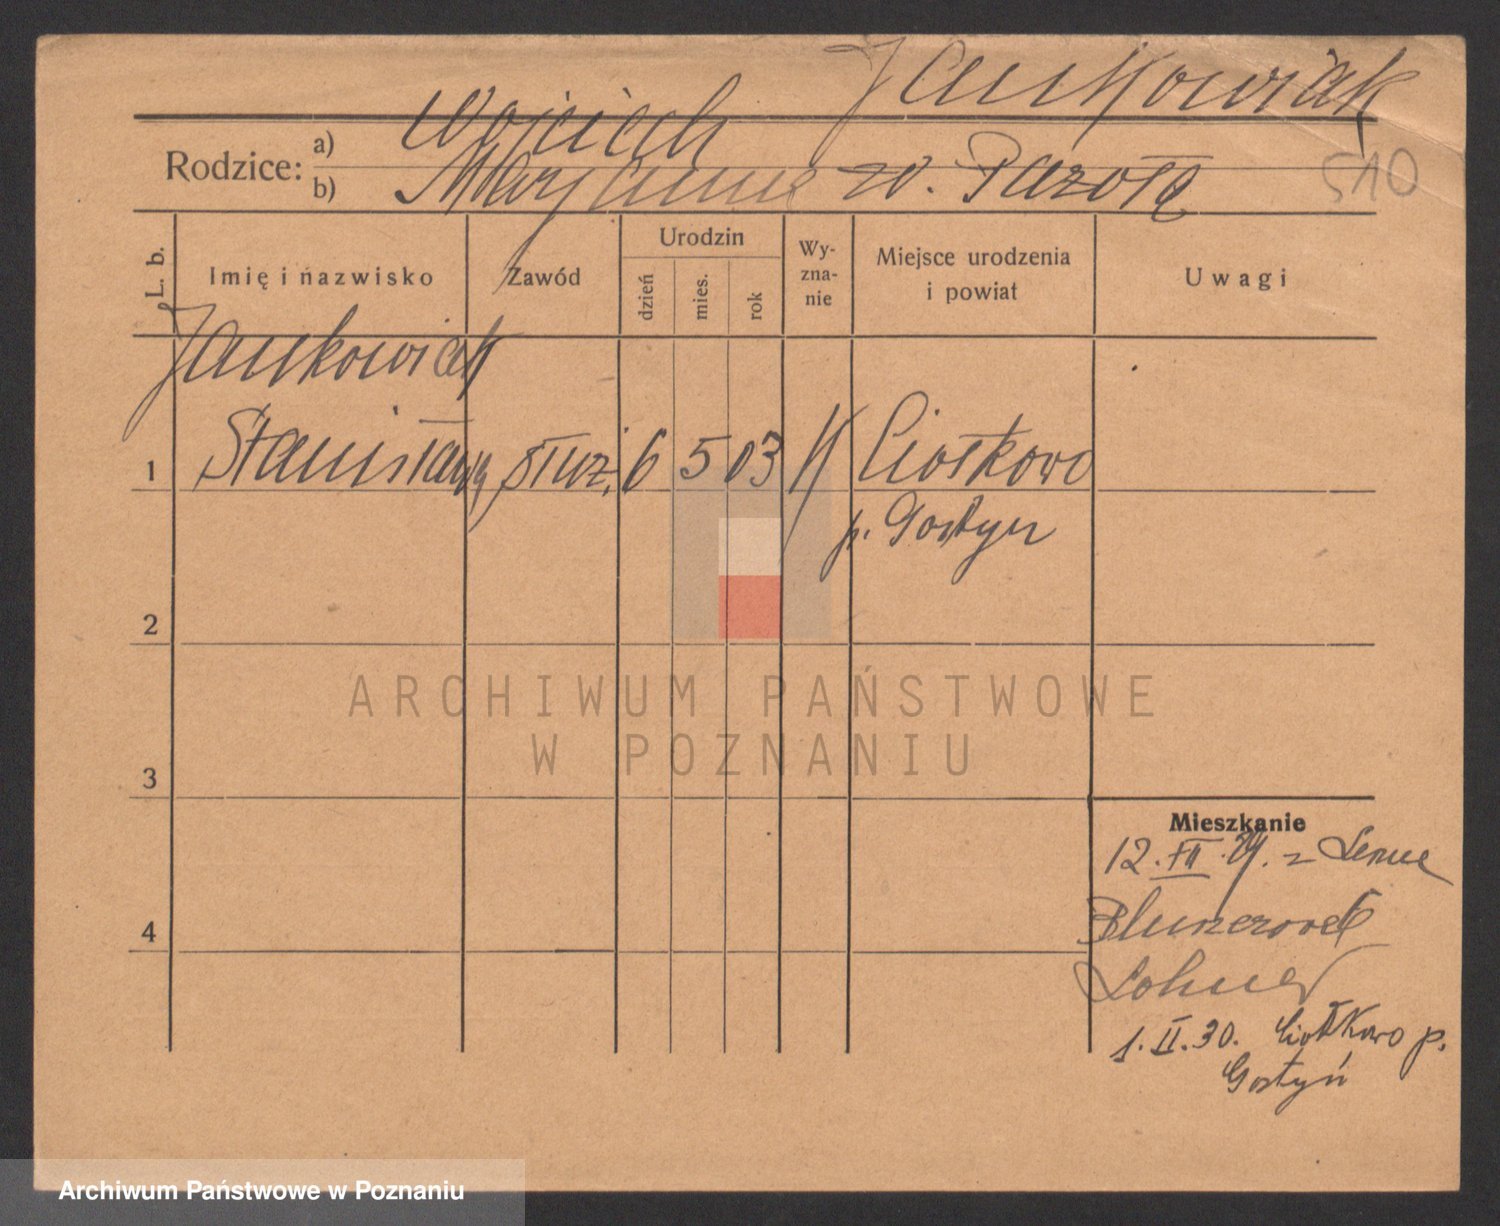 Jankowiak
Rodzice: a) Wojciech
b) Maryanna
510
L. b.
Imię i nazwisko
Zawód
Urodzin
dzień
mies.
rok
Wy-
zna-
nie
Miejsce urodzenia
i powiat
Uwagi
Jankowiak
1 Stanisława służ. 6 5 03 K Ciołkowo
p. Gostyń
2
3
4
Mieszkanie
12. XII. 29. z
1. II. 30. Ciołkowo p.
Gostyń
ARCHIWUM PAŃSTWOWE
W POZNANIU
Archiwum Państwowe w Poznaniu